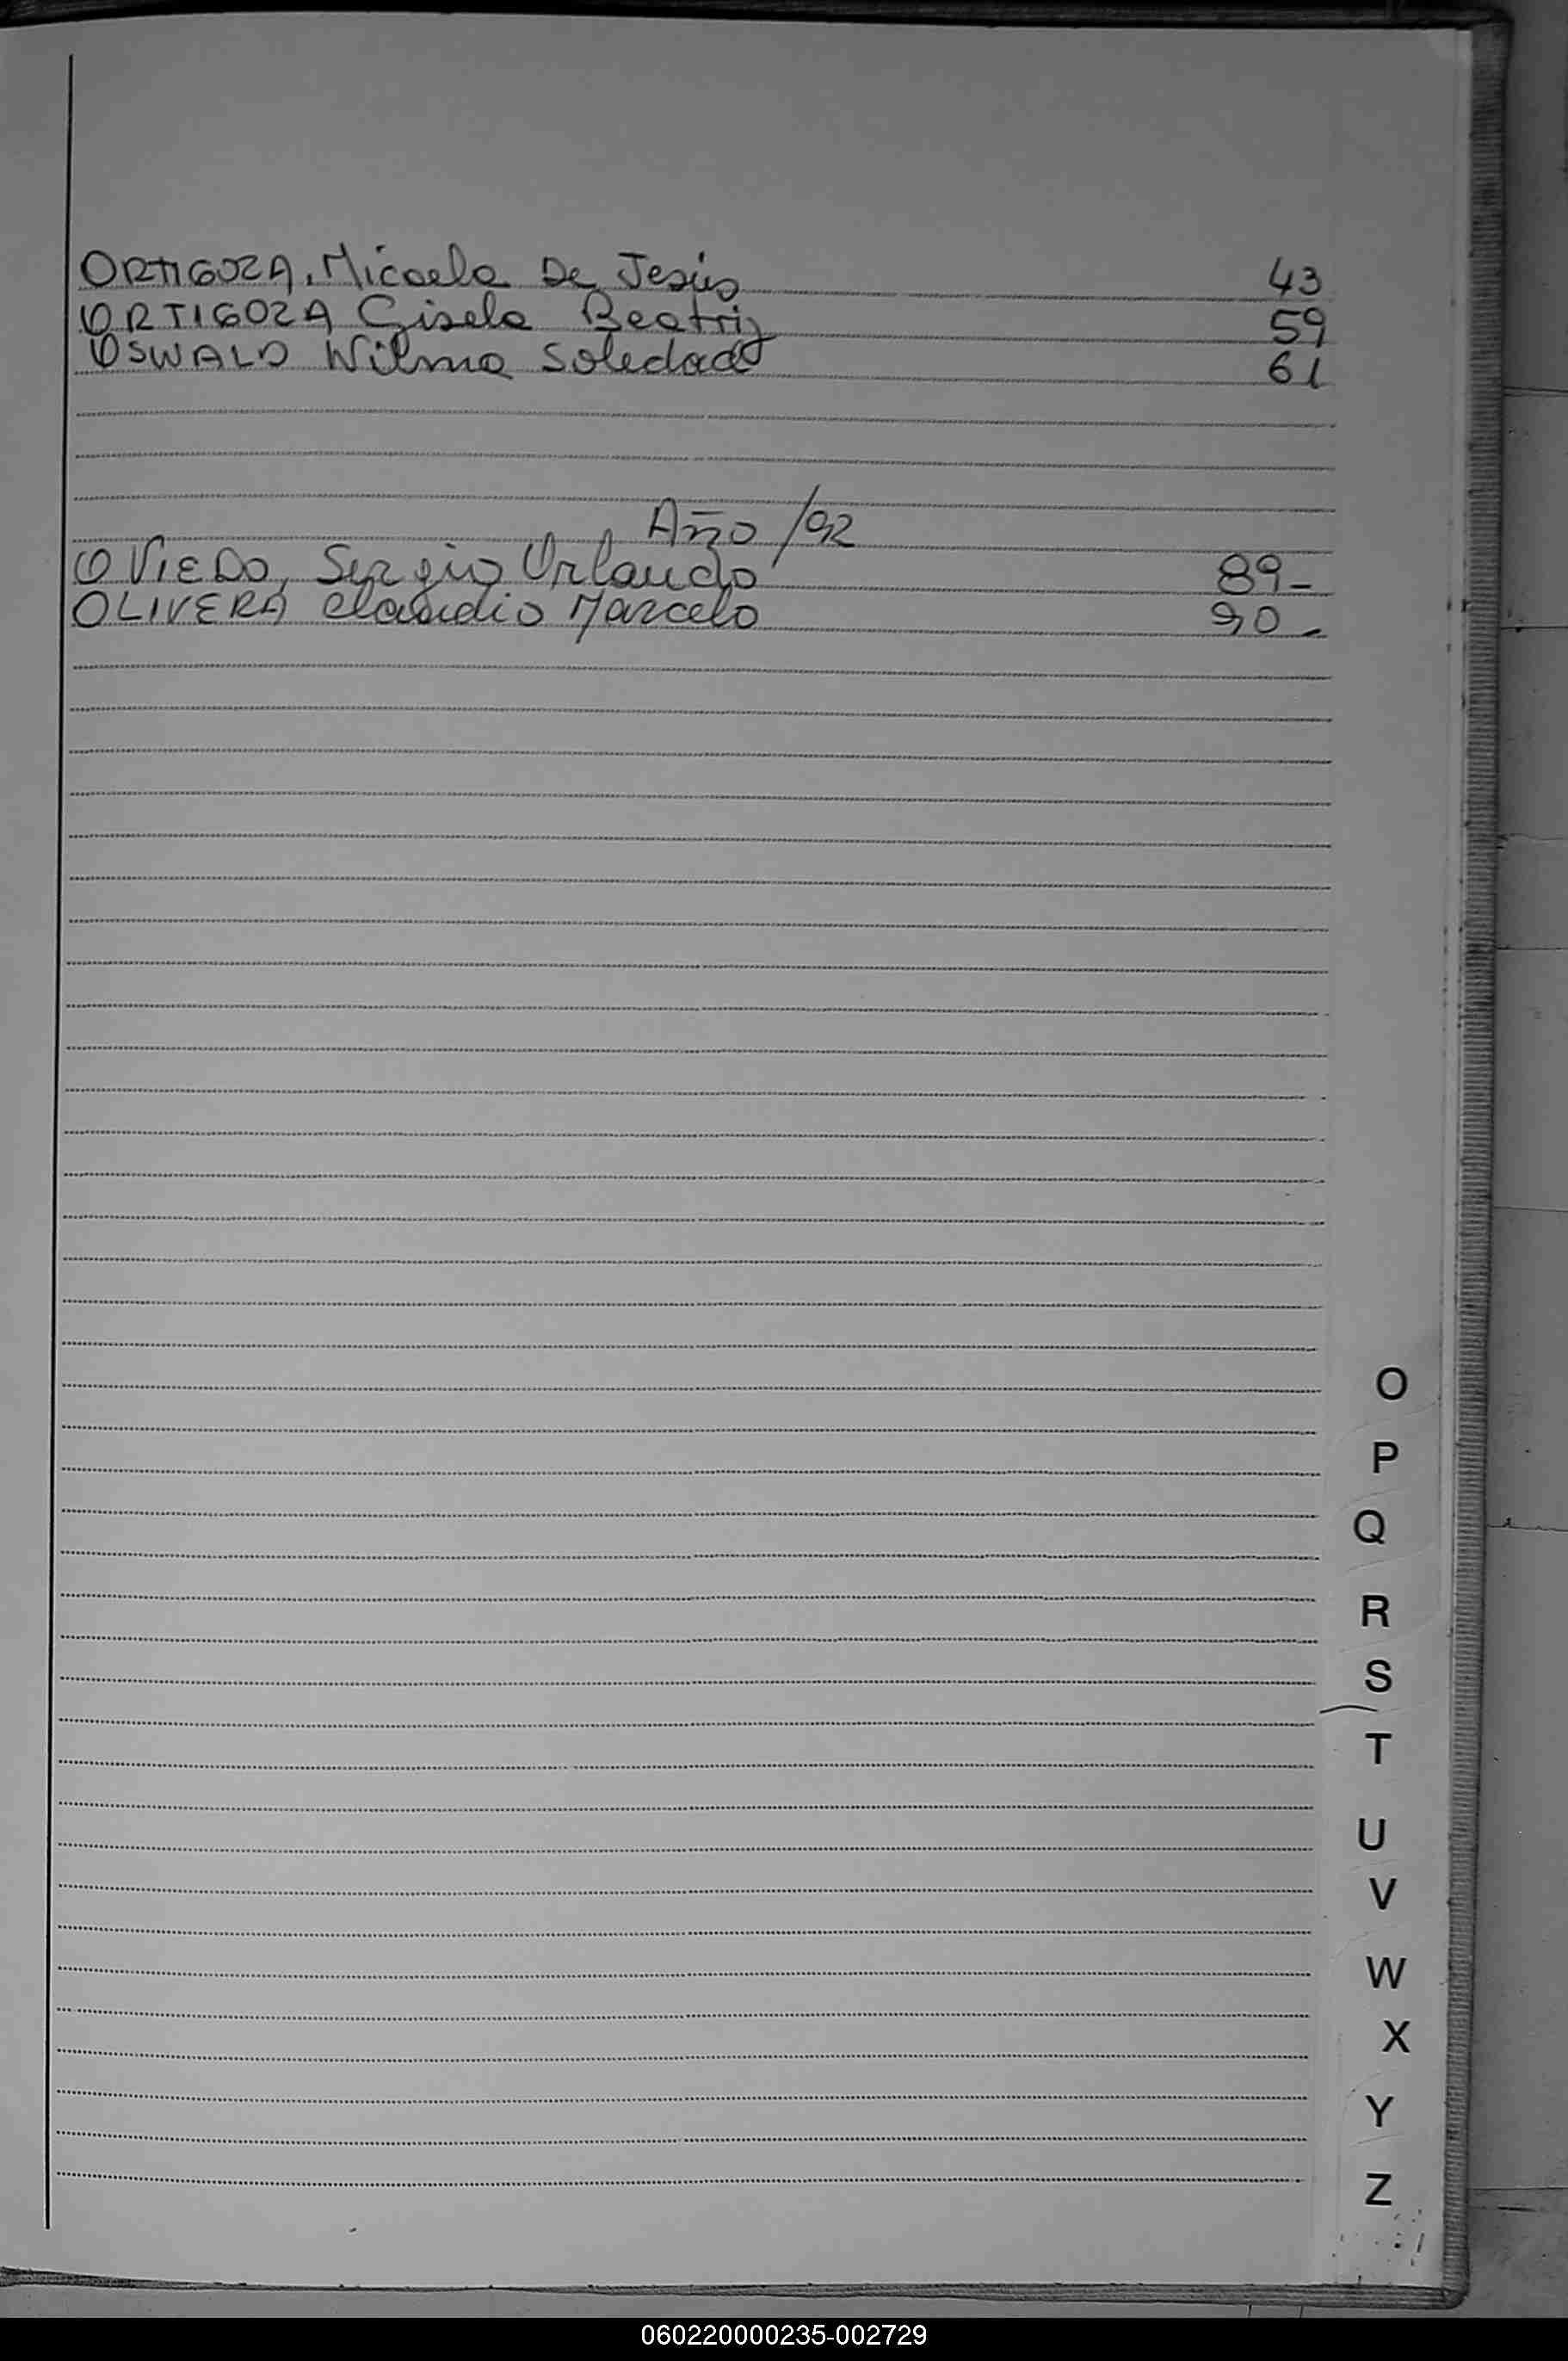 ORTIGOZA, Micaela De Jesús 43
ORTIGOZA Gisela Beatriz 59
OSWALD Wilma Soledad 61
Año /92
OVIEDO, Sergio Orlando 89-
OLIVERA Claudio Marcelo 90-
O
P
Q
R
S
T
U
V
W
X
Y
Z
060220000235-002729